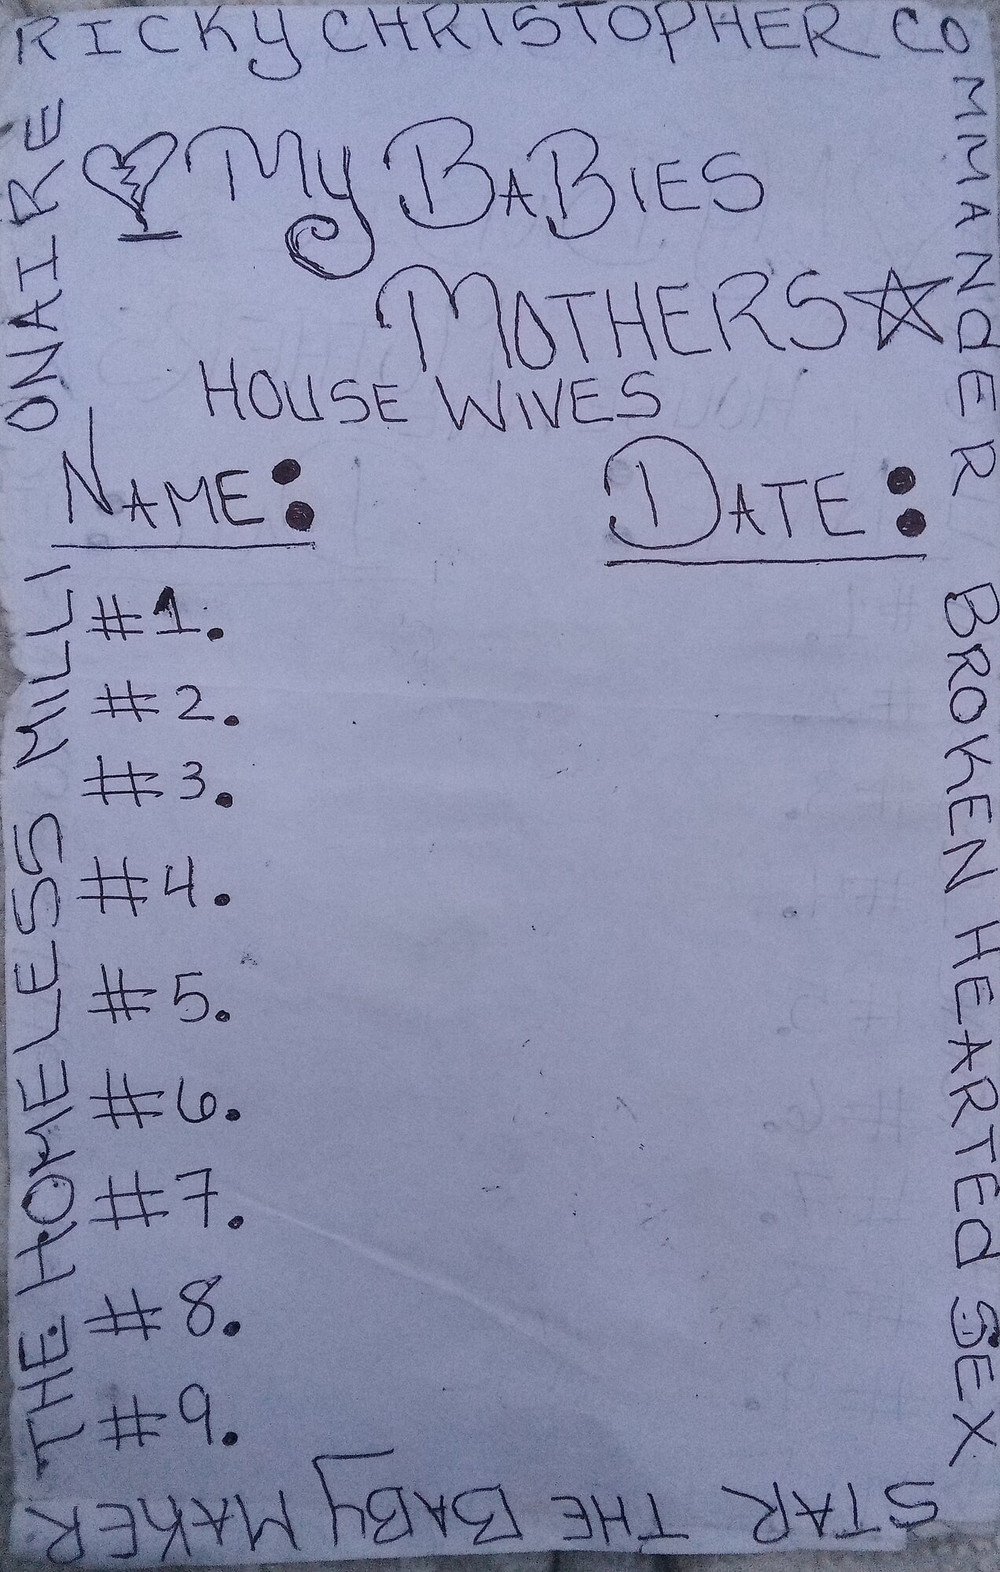 RICKY CHRISTOPHER COMMANDER BROKEN HEARTED SEX STAR THE BABY MAKER
THE HOMELESS MILLIONAIRE
My BABIES
MOTHERS
HOUSE WIVES
NAME: DATE:
#1.
#2.
#3.
#4.
#5.
#6.
#7.
#8.
#9.